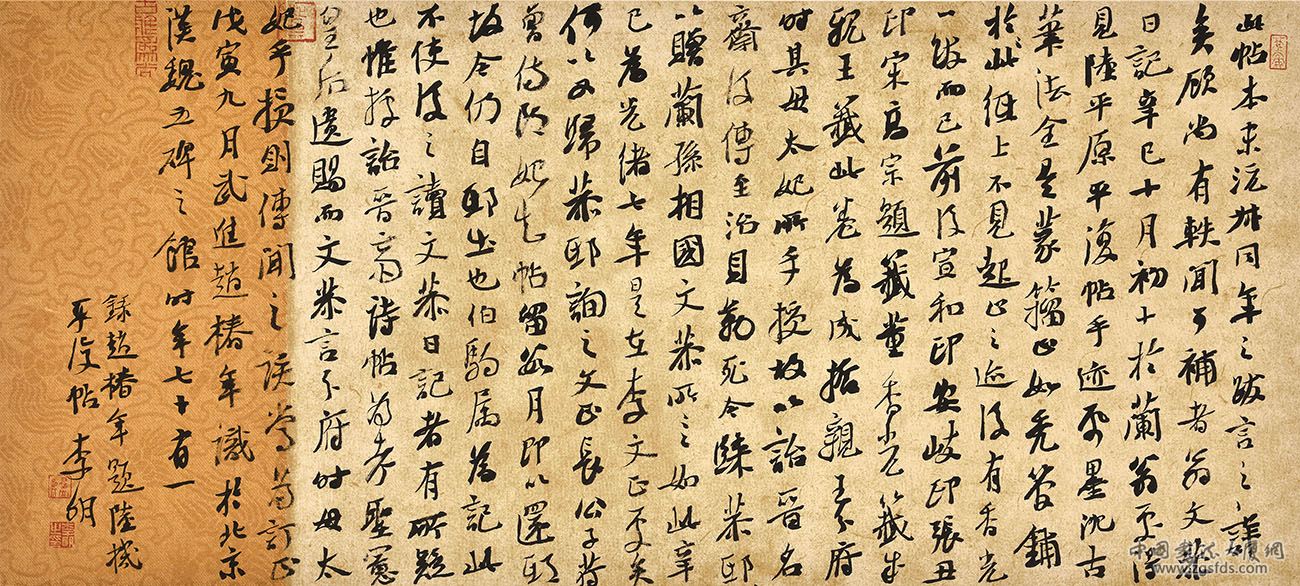 此帖本末沅叔同年之跋言之詳
矣顧尚有軼聞可補者翁文恭
日記辛巳十月初十於蘭翁處得
見陸平原平復帖手迹墨沈古
筆法全是篆籀正如禿管鋪
於此紙上不見起止之迹後有香光
一跋而已前後宣和印安岐印張丑
印宋高宗題籤董香光籤成
親王籤此卷為成哲親王分府
時其母太妃所手授故以詒晉名
齋後傳至治貝勒死今歸恭邸
以贈蘭孫相國文恭所言如此辛
巳為光緒七年是在李文正處矣
何以又歸恭邸詢之文正長公子符
曾侍郎知帖留數月即以還邸
故今仍自邸出也伯駒屬為記此
不使後之讀文恭日記者有所疑
也惟按詒晉齋詩帖為孝聖憲
皇后遺賜而文恭言分府時母太
妃手授則傳聞之誤當為訂正
戊寅九月武進趙椿年識於北京
漢魏五碑之館時年七十有一
錄趙椿年題陸機
平復帖 李明
www.zgsfds.com